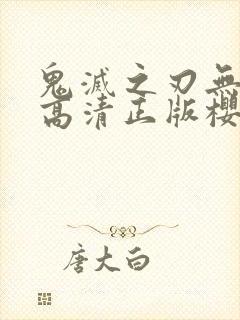 鬼滅之刃無
高清正版櫻
唐大白